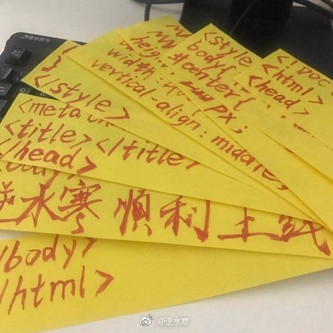 <!DOC
<html>
<head>
<style
body{
#center{
px;
vertical-align: middle;
</style>
<meta
<title></title>
</head>
逆水寒 順利上线
/body>
/html>
@逆水寒